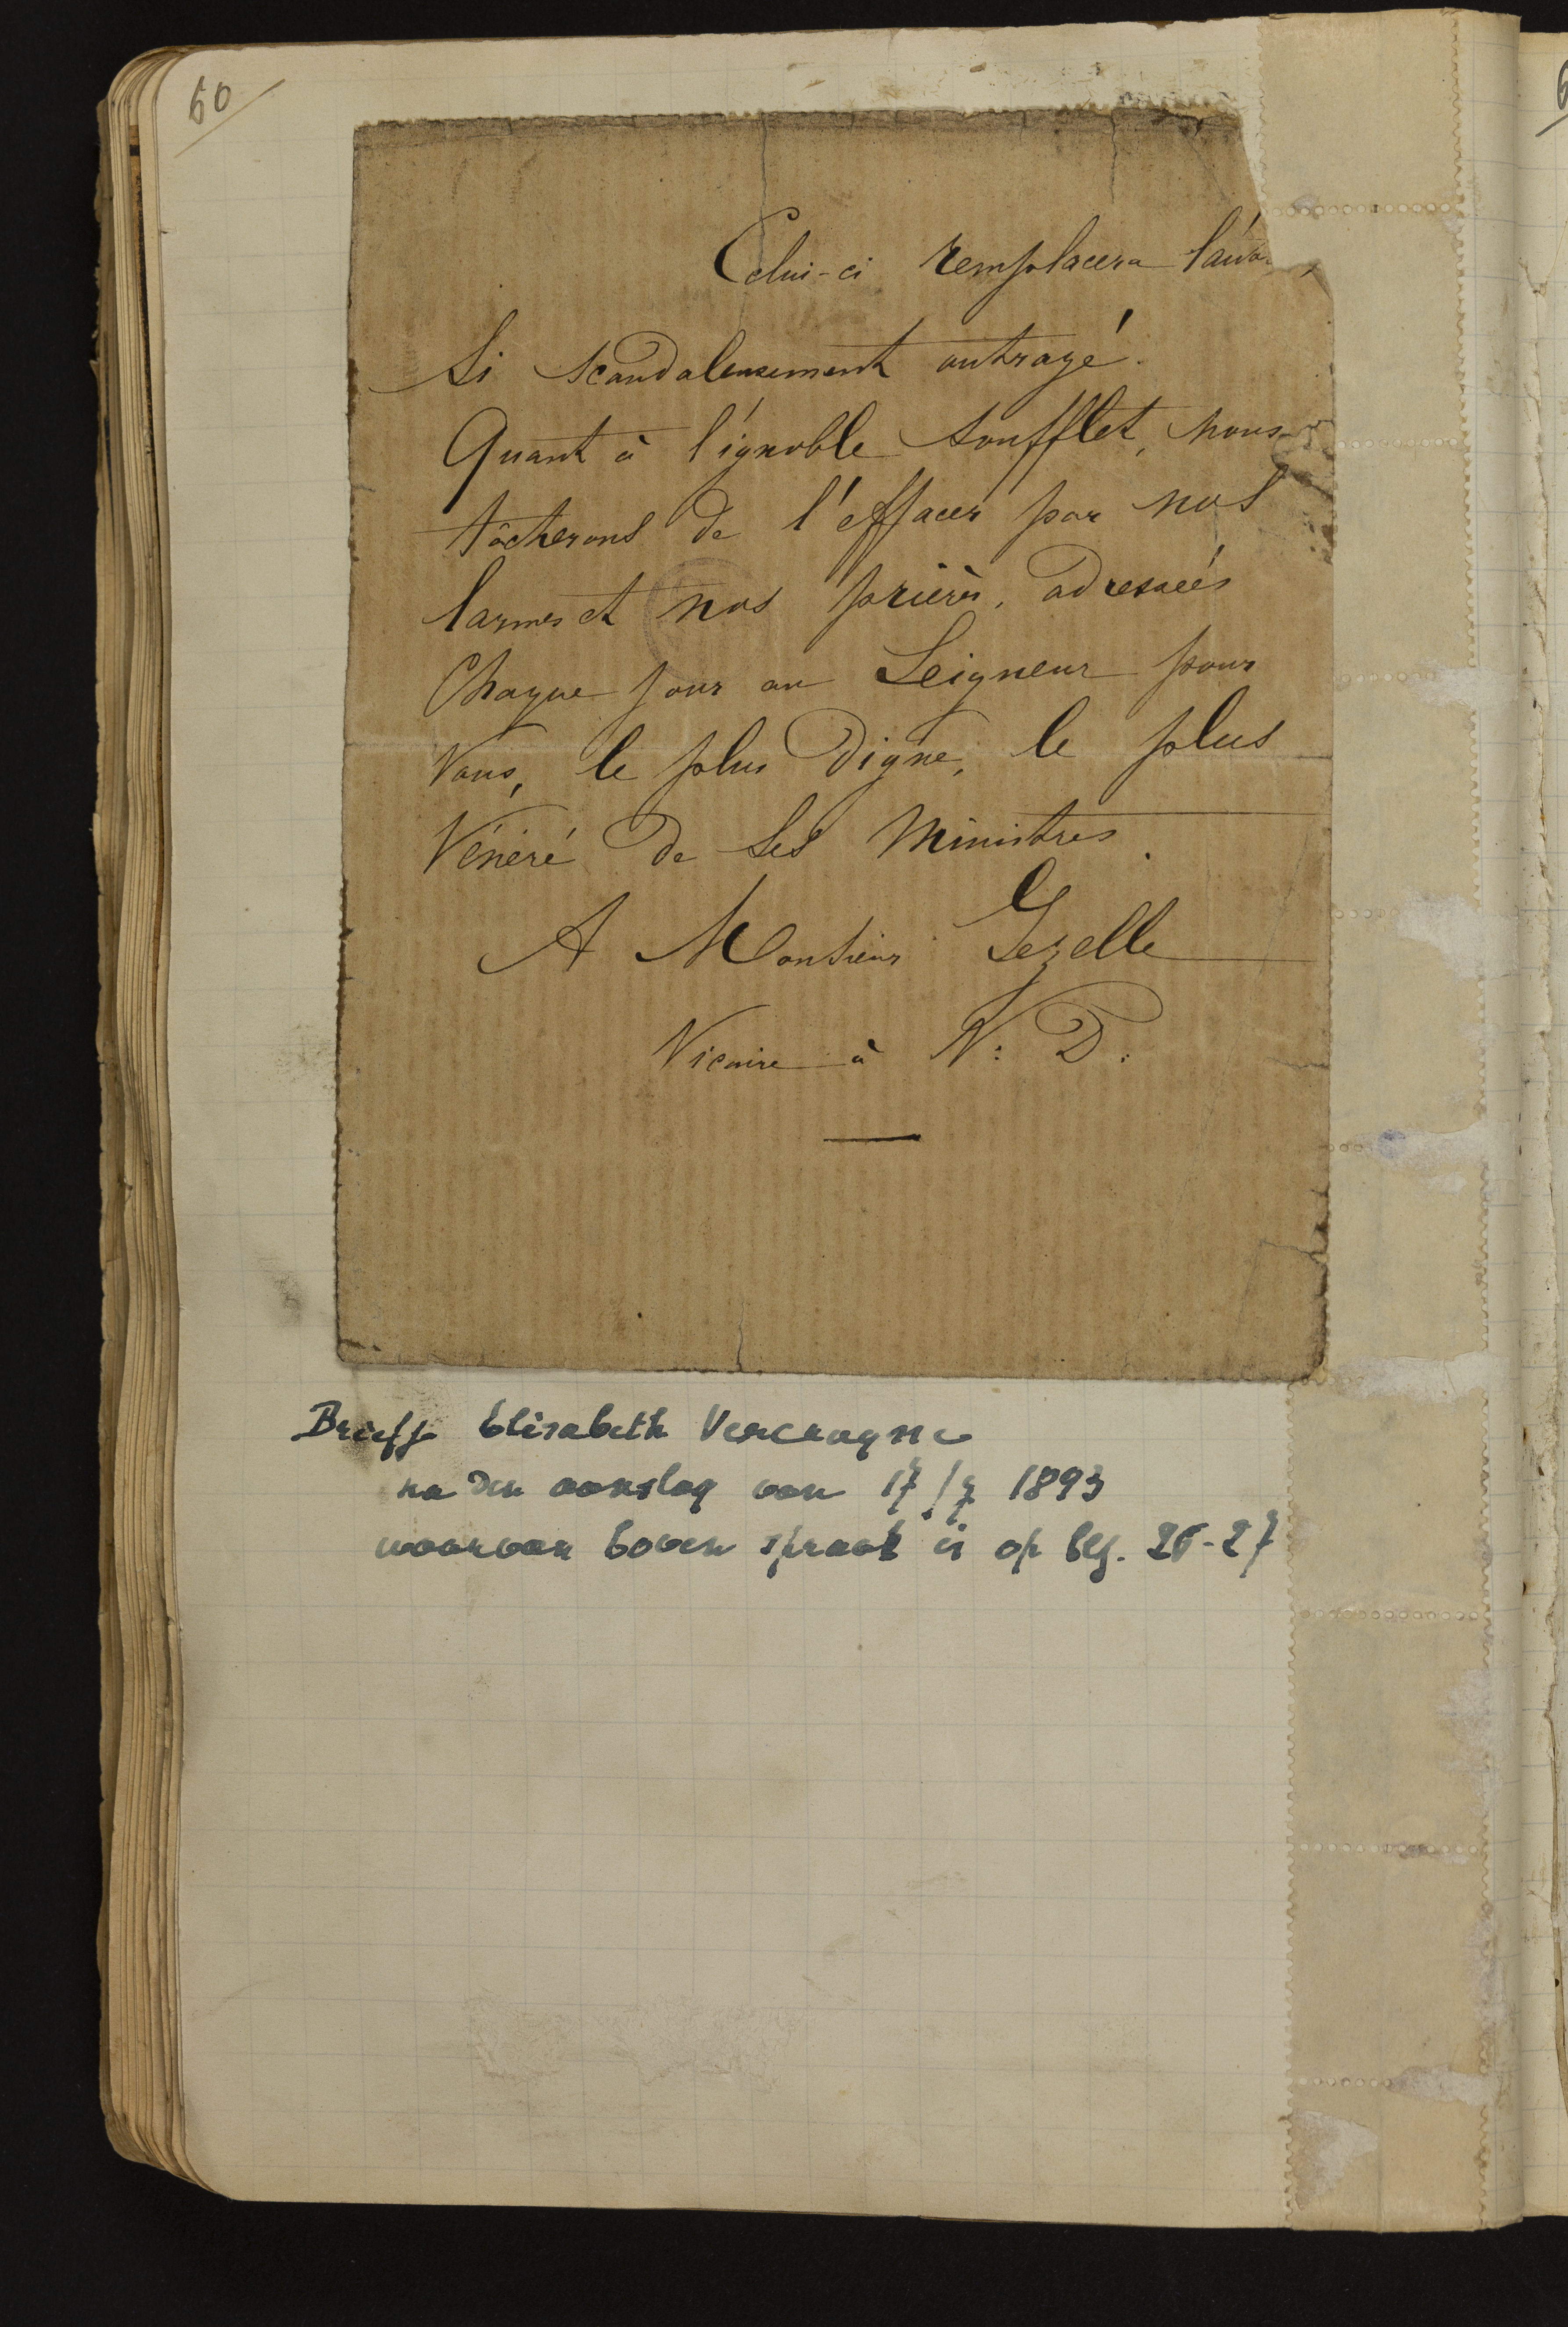 60
Celui-ci remplacera
Si scandaleusement outragé.
Quant à l'ignoble soufflet, nous
tâcherons de l'effacer par nos
larmes et nos prières, adressées
Chaque jour au Seigneur pour
Vous, le plus Digne, le plus
Vénéré de Ses Ministres.
A Monsieur Gezelle
Vicaire à N: D:
Briefje Elisabeth Vercruysse
na den aanslag van 17/7 1893
waarvan boven spraak is op blz. 26-27